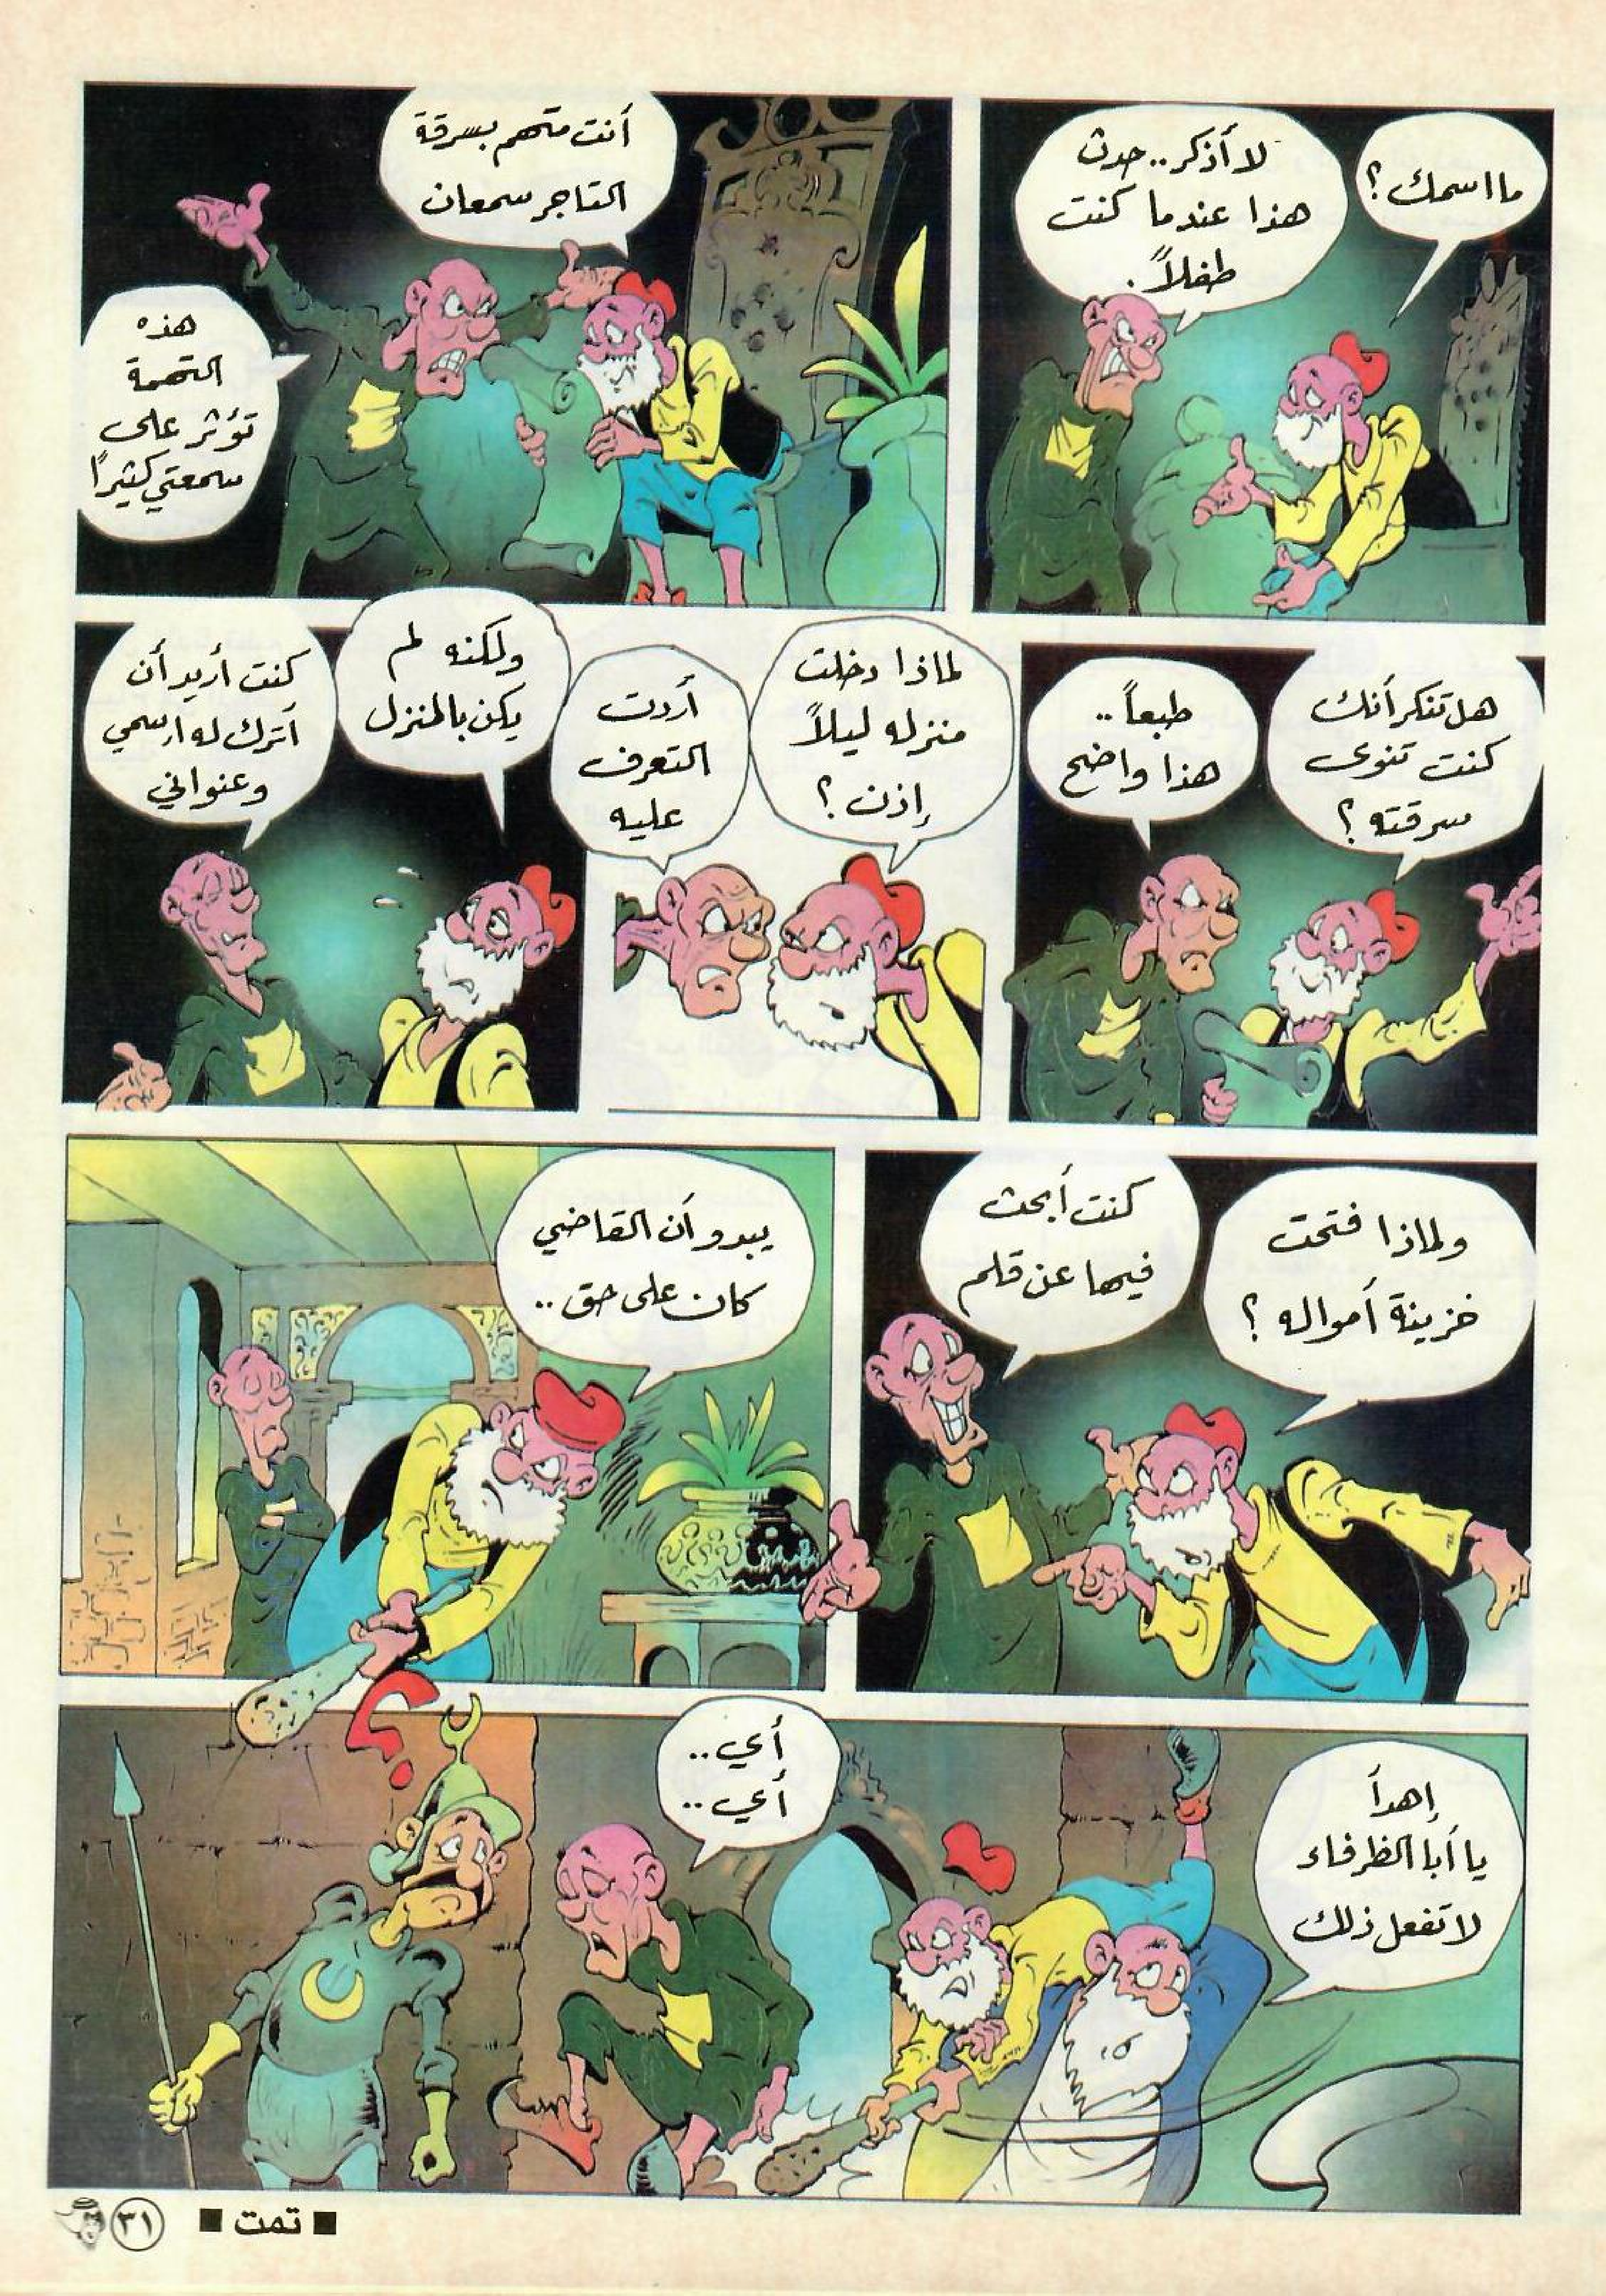 ما اسمك ؟
لا أذكر .. حدث
هذا عندما كنت
طفلاً .
أنت متهم بسرقة
التاجر سمعان
هذه
التهمة
تؤثر على
سمعتي كثيرًا
هل تنكر أنك
كنت تنوى
سرقته ؟
طبعاً ..
هذا واضح
لماذا دخلت
منزله ليلاً
إذن ؟
أردت
التعرف
عليه
ولكنه لم
يكن بالمنزل
كنت أريد أن
أترك له اسمي
وعنواني
ولماذا فتحت
خزينة أمواله ؟
كنت أبحث
فيها عن قلم
يبدو أن القاضي
كان على حق ..
إهدأ
يا أبا الظرفاء
لا تفعل ذلك
أي ..
أي ..
؟
■ تمت ■
٣١